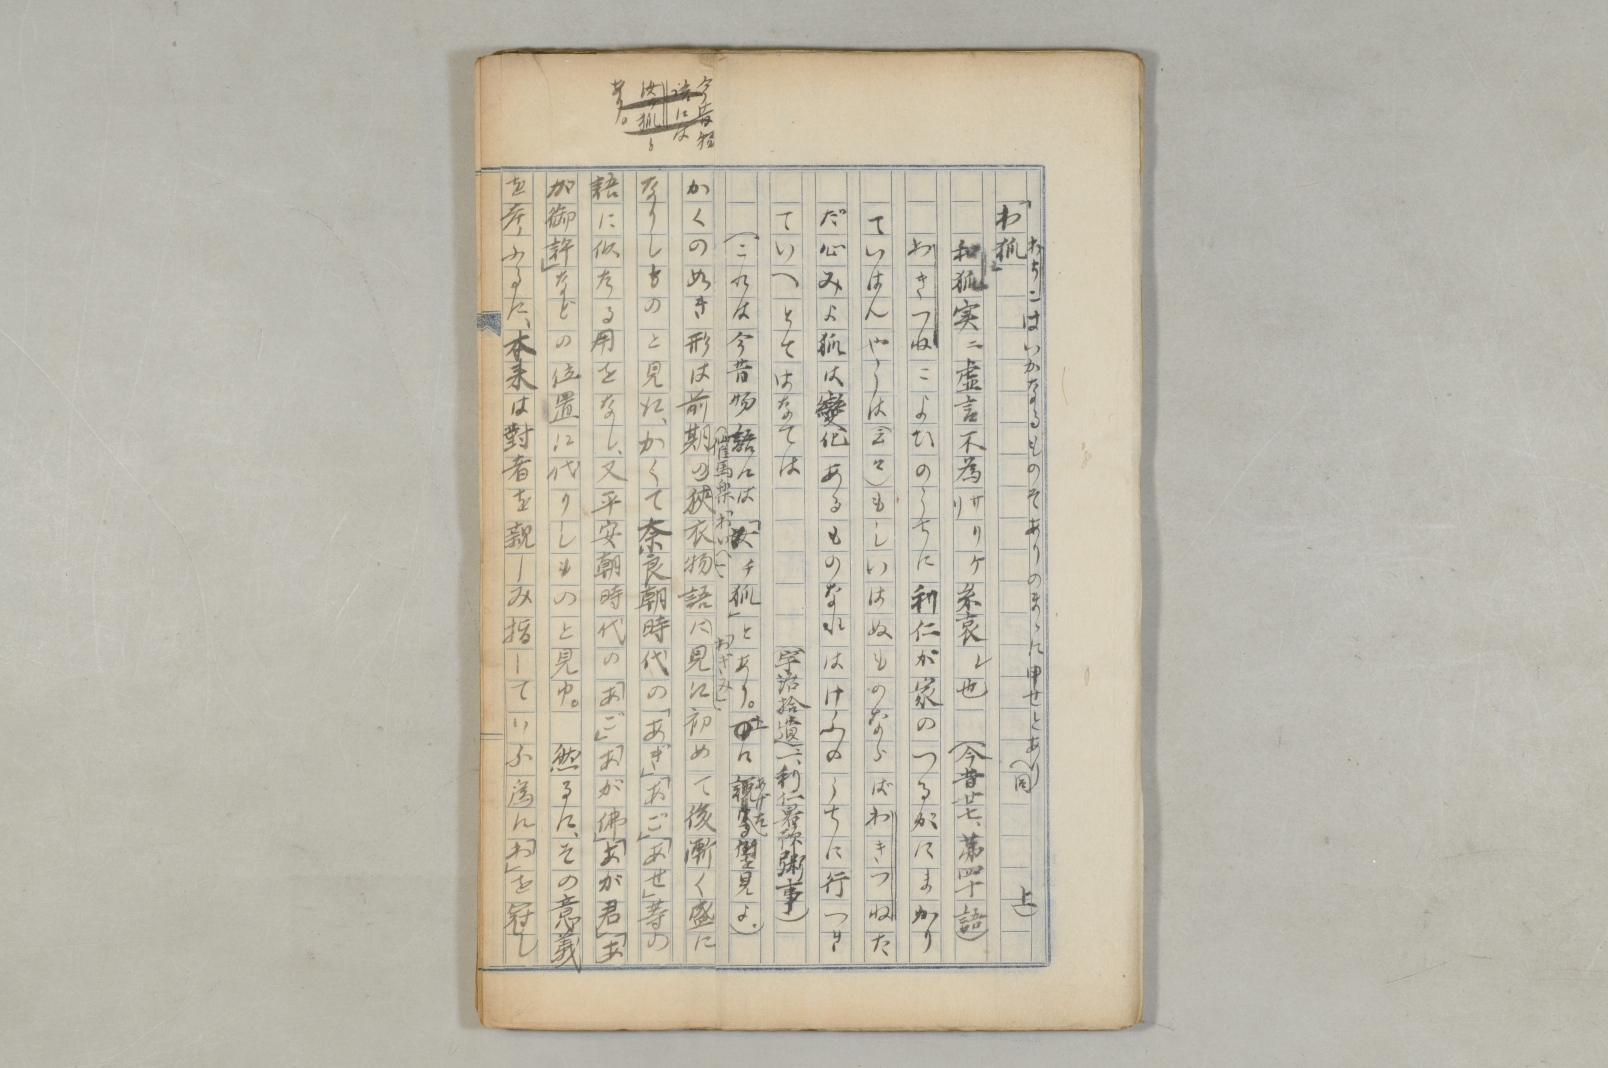 わちこはいかなるものそありのまゝに申せとあり(同
上)
「わ狐」
和狐実ニ虚言不為サリケリ糸哀レ也 (今昔廿七、第四十語)
わきつねこよひのうちに利仁が家のつるがにまかり
ていはんやうは(云々)もしいはぬものならばわきつねた
だ心みよ狐は變化あるものなれはけふのうちに行つき
ていへとてはなては
(宇治拾遺一、利仁暑預粥事)
(これは今昔物語には「汝チ狐」とあり。上にあげたる
を見よ。)
かくの如き形は前期の狭衣物語に見江初めて後漸く盛に
(催馬楽「わいへ」
わぎみ」
なりしものと見江、かくて奈良朝時代の「あぎ」「あご」「あせ」等の
語に似たる用をなし、又平安朝時代の「あご」「あが佛」「あが君」「あ
が御許」などの位置に代りしものと見ゆ。然るに、その意義
を考ふるに、本来は對者を親しみ指していふ為に「わ」を冠し
今昔物
語には
汝チ狐と
あり。